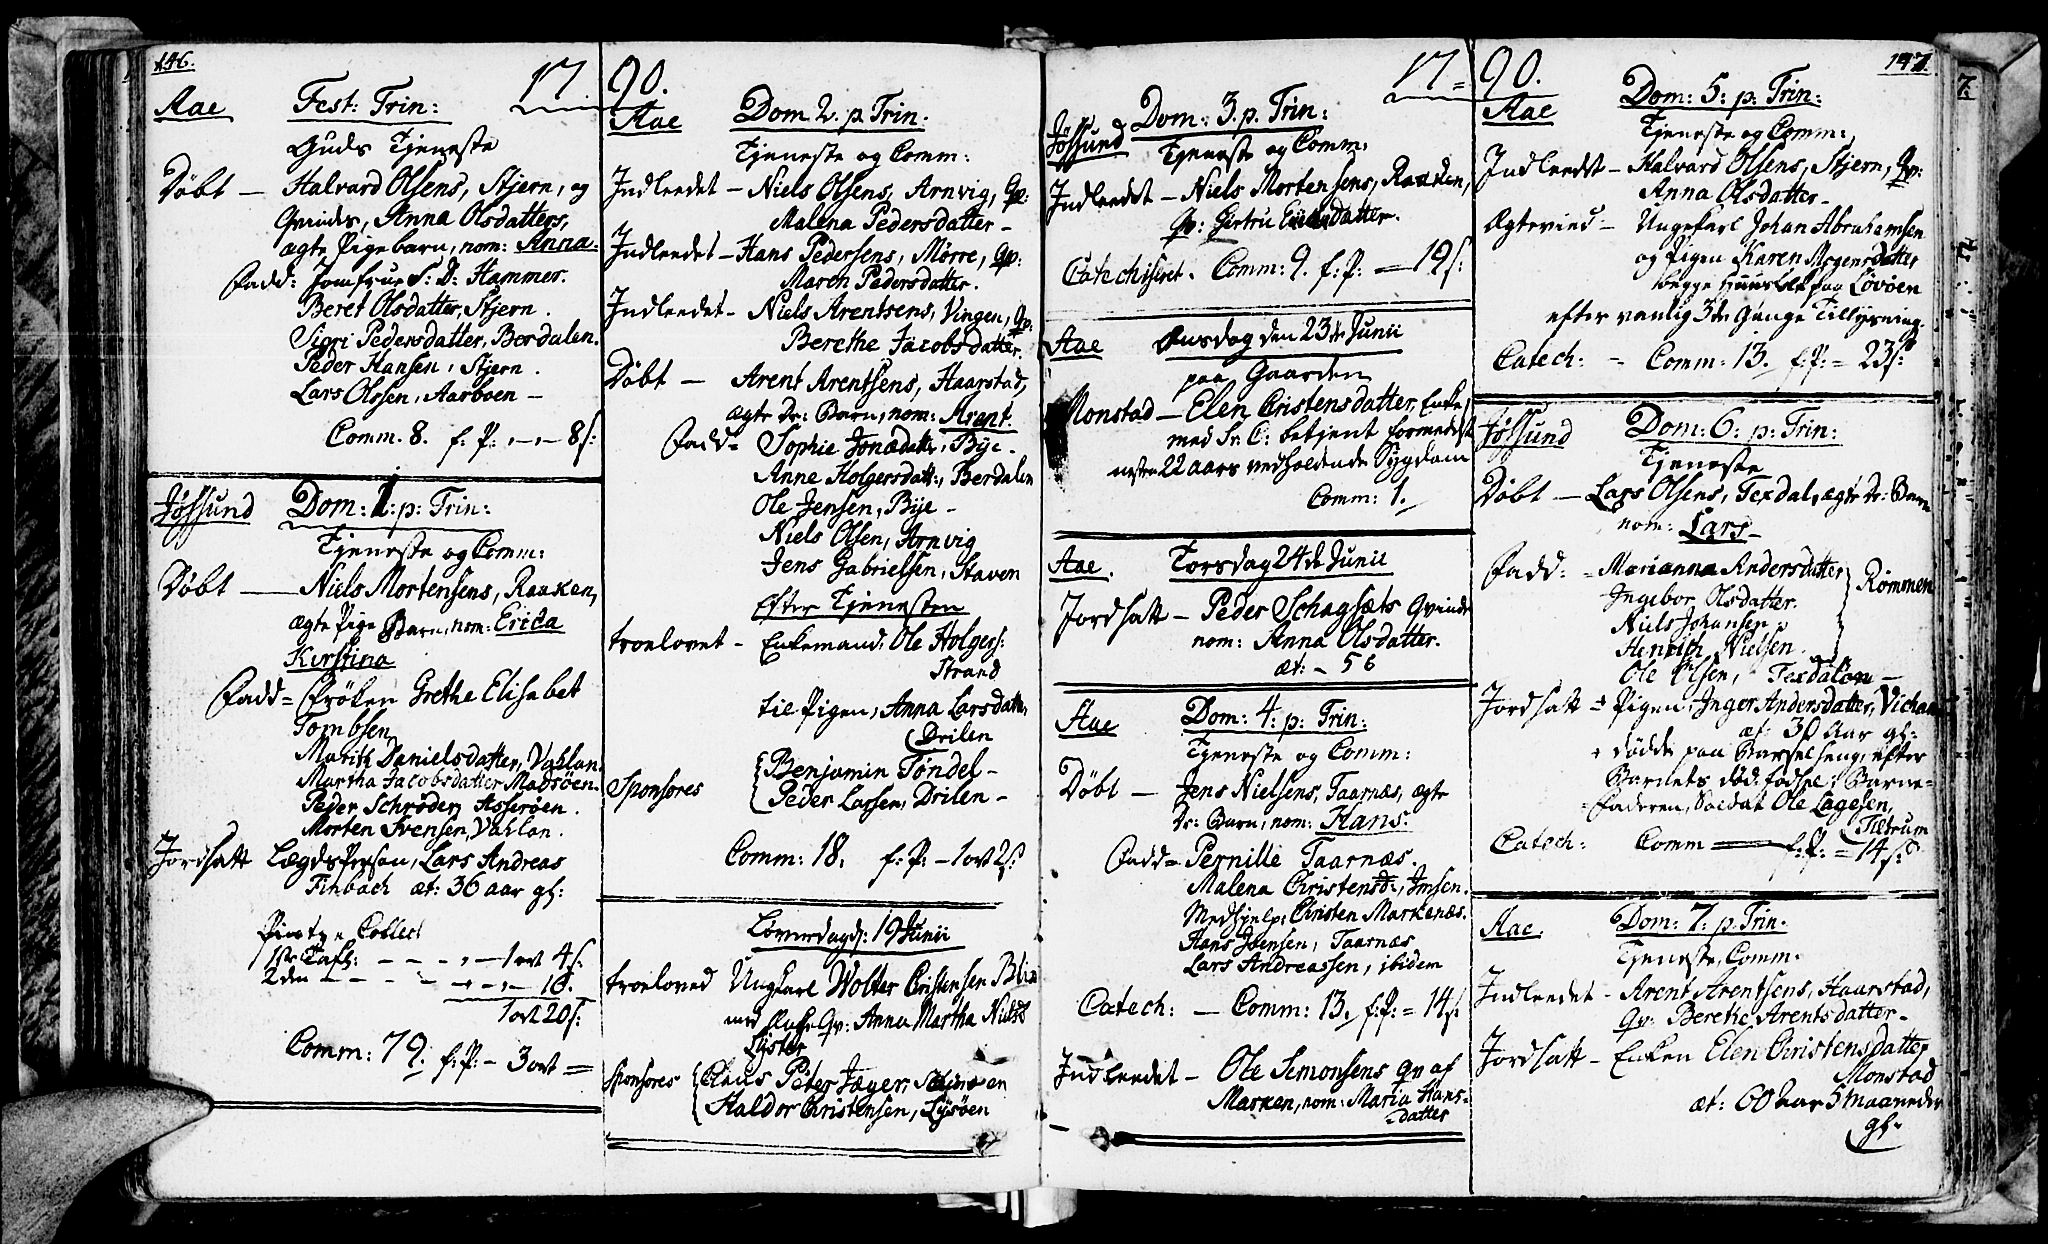 146.
17 90.
Aae Fest: Trin:
Guds Tjeneste
Döbt — Halvard Olsens, Stjern, og
Qvindes, Anna Olsdatters,
ægte Pigebarn, nom: Anna.
Fadd: Jomfrue S: D: Hammer.
Beret Olsdatter, Stjern.
Siri Pedersdatter, Berdalen.
Peder Hansen, Stjern.
Lars Olsen, Aarboen —
Comm. 8. f: P: — — 8 s:
Jössund Dom: 1: p: Trin:
Tjeneste og Comm:
Döbt — Niels Mortensens, Raaken,
ægte Pige Barn, nom: Erica
Kirstina
Fadd = Fröken Grethe Elisabet
Tombsen
Marith Danielsdatter, Vahlan.
Martha Jacobsdatter Madsöen.
Peder Schröder, Asseröen.
Morten Svensen, Vahlan.
Jordsatt Lægds Person, Lars Andreas
Finbach æt: 36 aar gl:
Collect
1ste Tafl: — — — 1 ort 4 s.
2den — — — — 16.
1 ort 20 s:
Comm: 79. f: P: — 3 ort =
Aae Dom 2. p. Trin:
Tjeneste og Comm:
Indleedet — Niels Olsens, Arnvig, Qv:
Malena Pedersdatter —
Indleedet — Hans Pedersens, Mörre, Qv:
Maren Pedersdatter.
Indleedet — Niels Arentsens, Vingen, Qv:
Berethe Jacobsdatter.
Döbt — Arent Arentsens, Haarstad,
ægte Dr: Barn, nom: Arent.
Fadd = Sophie Jonædattr, Bije.
Anne Holgersdattr, Berdalen
Ole Jensen, Bije —
Niels Olsen, Arnvig
Jens Gabrielsen, Staven
Efter Tjenesten
troelovet — Enkemand, Ole Holgers:
Strand
til Pigen, Anna Larsdatter,
Drilen
Sponsores Benjamin Töndel —
Peder Larsen, Drilen —
Comm: 18. f: P: — 1 ort 2 s:
Löverdag d: 19 Junii
troeloved Ungkarl Wolter Cristensen
med Qv: Anna Martha Niels
Lyster
Sponsores Claus Peter Jæger,
Haldor Christensen, Lysöen
17 = 90. 147.
Jössund Dom: 3. p. Trin:
Tjeneste og Comm:
Indleedet — Niels Mortensens, Raaken,
Qv: Gertru
Catechiseret. Comm: 9. f: P: = 19 s:
Aae Onsdag den 23de Junii
paa Gaarden
Monstad — Elen Cristensdatter, Enke,
med Sr. C: betjent formedelst
næsten 22 aars vedholdende Sygdom
Comm: 1.
Aae. Torsdag 24de Junii
Jordsatt — Peder Schagsæts Qvinde
nom: Anna Olsdatter.
æt: — 56
Aae Dom: 4: p: Trin:
Tjeneste og Comm:
Döbt — Jens Nielsens, Taarnæs, ægte
Dr: Barn, nom: Hans.
Fadd = Pernille Taarnæs.
Malena Christensd:, Imsen.
Medhjelp: Christen Markenæs.
Hans Jensen, Taarnæs
Lars Andreassen, ibidem
Catech: — Comm: 13. f: P: = 14 s:
Indleedet — Ole Simonsens Qv af
Marken, nom: Maria Hans-
datter
Aae Dom: 5: p: Trin:
Tjeneste og Comm:
Indleedet — Halvard Olsens, Stjern, Qv:
Anna Olsdatter —
Ægteviet — Ungekarl Johan Abrahamsen
og Pigen Karen Mogensdatter
begge paa Lövöen
efter vanlig 3de Gange Tillysning.
Catech: — Comm: 13. f: P: = 23 s:
Jössund Dom: 6: p: Trin:
Tjeneste
Döbt — Lars Olsens, Texdal, ægte Dr: Barn
nom: Lars —
Fadd: = Marianna Andersdatter
Ingebor Olsdatter.
Niels Johansen
Henrich Nielsen.
Rommen
Ole Olsen, Texdalön —
Jordsatt = Pigen, Inger Andersdatter,
æt: 30 Aar gl:
döde paa Barselseng, efter
Barnets död födsel; Barne-
faderen, Soldat Ole Lagesen,
Tiltrum
Catech: Comm — f: P: = 14 s:
Aae. Dom: 7: p. Trin.
Tjeneste, Comm.
Indleedet — Arent Arentsens, Haarstad,
Qv: Berethe Arentsdatter —
Jordsatt — Enken Elen Christensdatter,
Monstad
æt: 60 Aar 5 maaneder
gl: